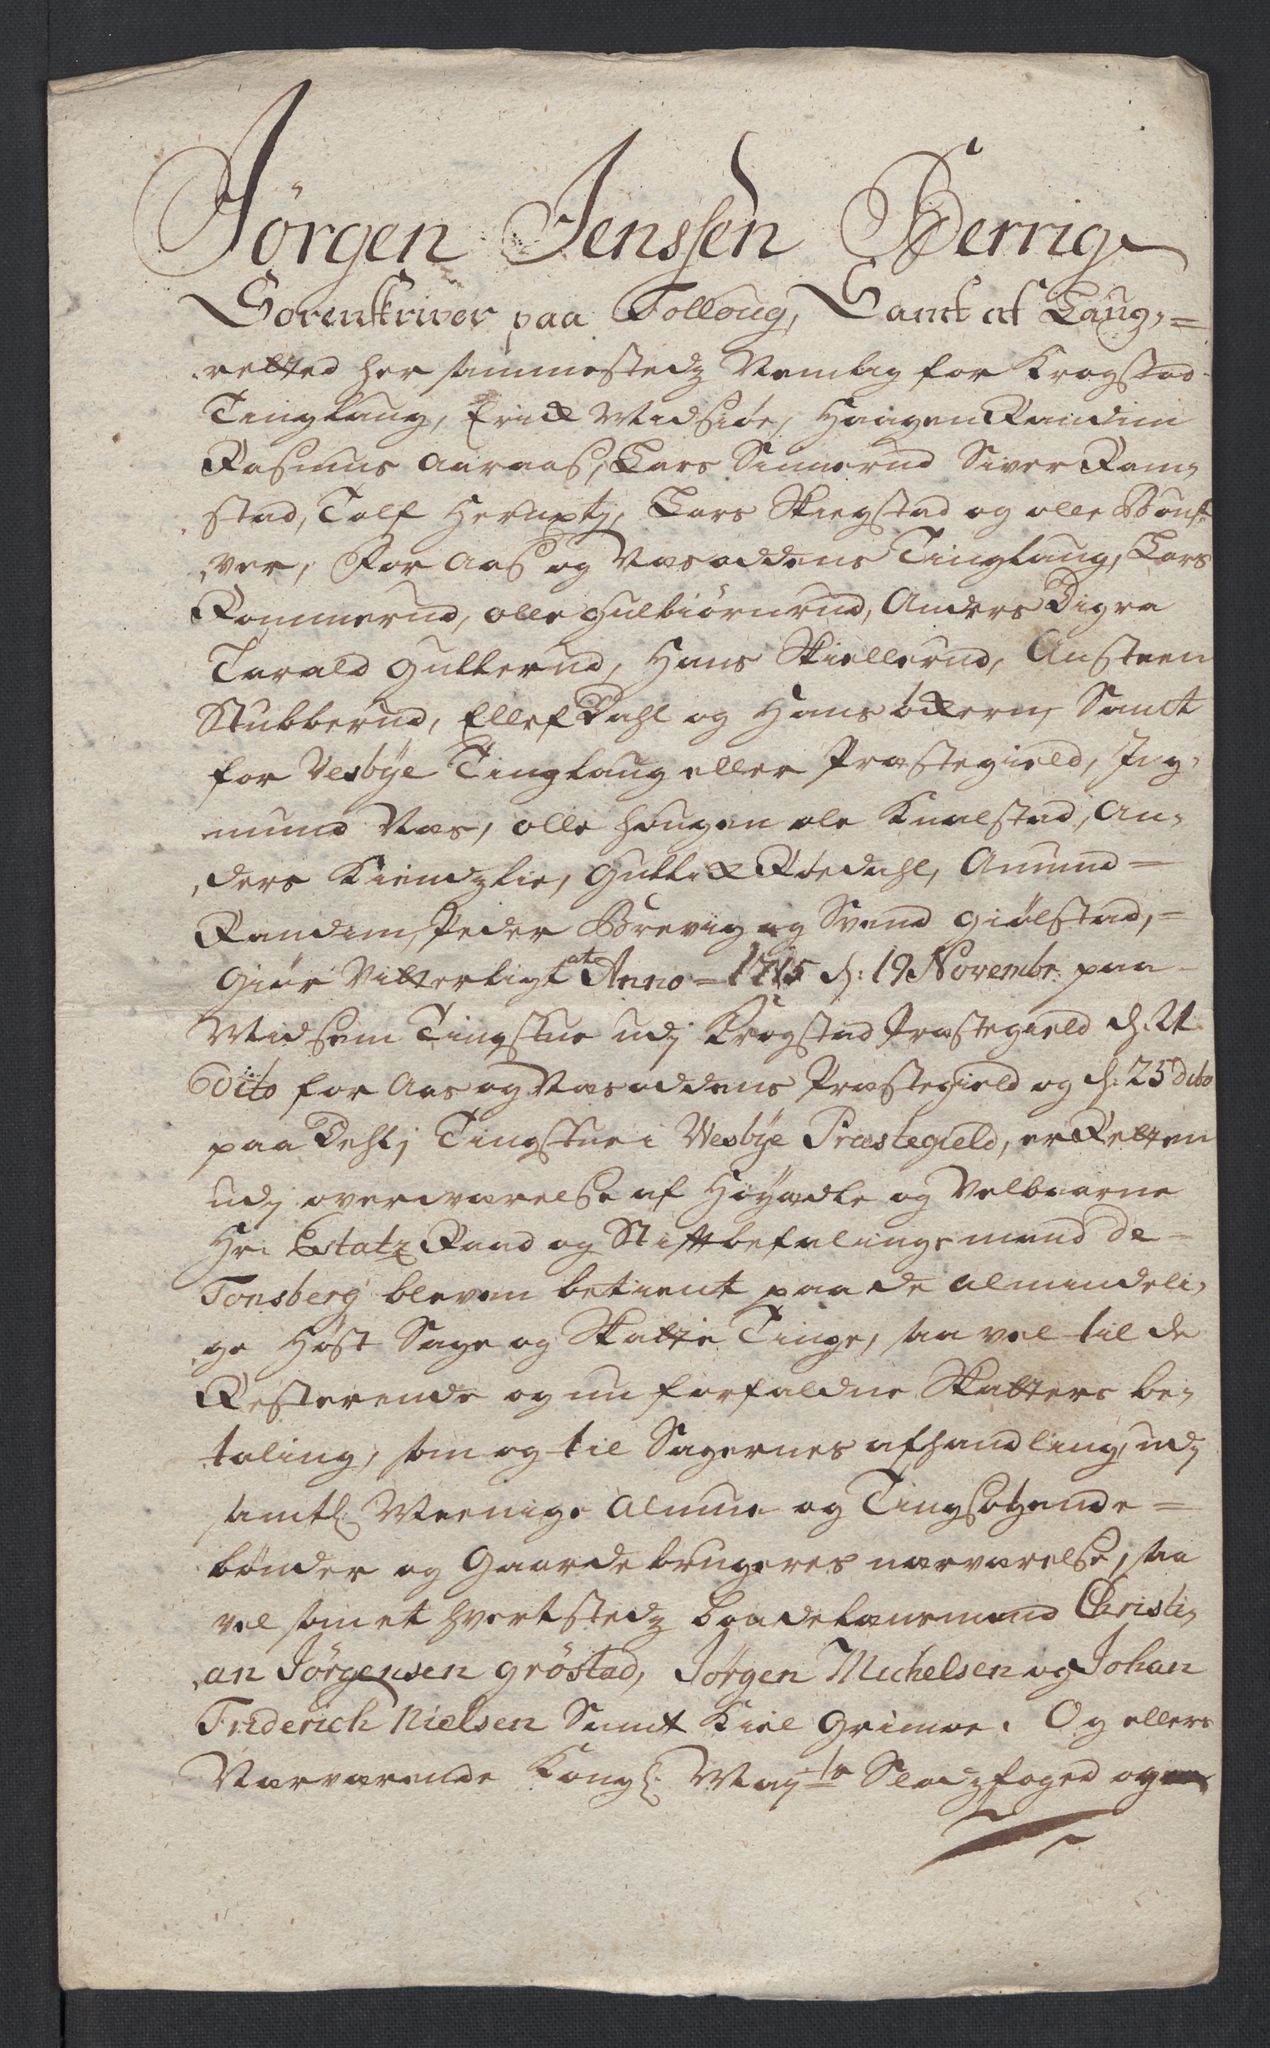 Jörgen Jenssen Berrig
Sorenskriver paa Folloug, Samt af Laug,=
retted her sammestedz Nemlig for Krogstad
Tinglaug, Erick Midsiøe, Haagen Randim
Rasmus Aaraas, Lars Sinnerud Siver Ram,
stad, Tolf Herupty, Lars Skiegstad og olle
ver, For Aas og Næsoddens Tinglaug, Lars
Rommerud, olle Gulbiörnrud, Anders Digra
Tarald Gullerud, Hans Skiellerud, Austeen
Stubberud, Ellef Dahl og Hans öxern, Samt
for Vesbÿe Tinglaug eller Præstegield, Ing,
mund Næs, olle Hougen ole Knalstad, An,
ders Kiendzlie, Gullick Röedahl, Amund=
Randem, Peder Brevig og Svend Giölstad,=
Giör Vitterligt at Anno= 1715 d: 19 Novembr: paa
Midsem Tingstue udj Krogstad Præstegield d: 21
Dito for Aas og Næsoddens Præstegield og d: 25 Dito
paa Dehlj Tingstue i Wesbÿe Præstegield, er Retten
udj overværelse af Höÿædle og Velbaarne
Hr: Estatz Raad og Stifftbefalingsmand de=
Tonsberg bleven betient paa de almindeli,
ge Höst Sage og Skatte Tinge, saa vel til de
Resterende og nu forfaldne Skatters be,
taling, som og til Sagernes afhandling, udj
samtl: Meenige Almue og Tingsögende=
bönder og Gaardebrugeres nærværelse, saa
vel som et hvert stedz bondelænsmand Christi,
an Jörgensen Gröstad, Jörgen Michelsen og Johan
Friderich Nielsen Samt Kiel Grimöe. Og ellers
Nærværende Kongl: Maÿ:ts Slodzfoged og